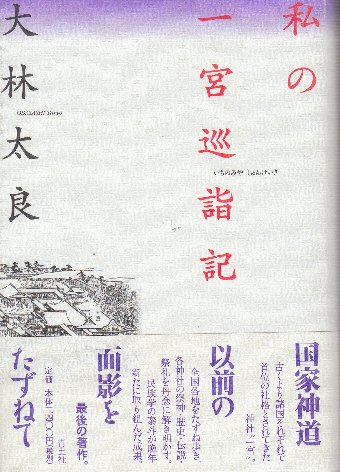 私の
一宮巡詣記
いちのみや じゅんけいき
大林太良
国家神道
古くより諸国それぞれで
首位の社格とされてきた
神社「一宮」。
以前の
全国各地をたずね歩き
各神社の祭神・歴史・伝説・
祭礼を丹念に解き明かす。
民族学の泰斗が晩年
新たに取り組んだ成果。
面影を
最後の著作。
青土社
定価 本体二四〇〇円(税別)
たずねて